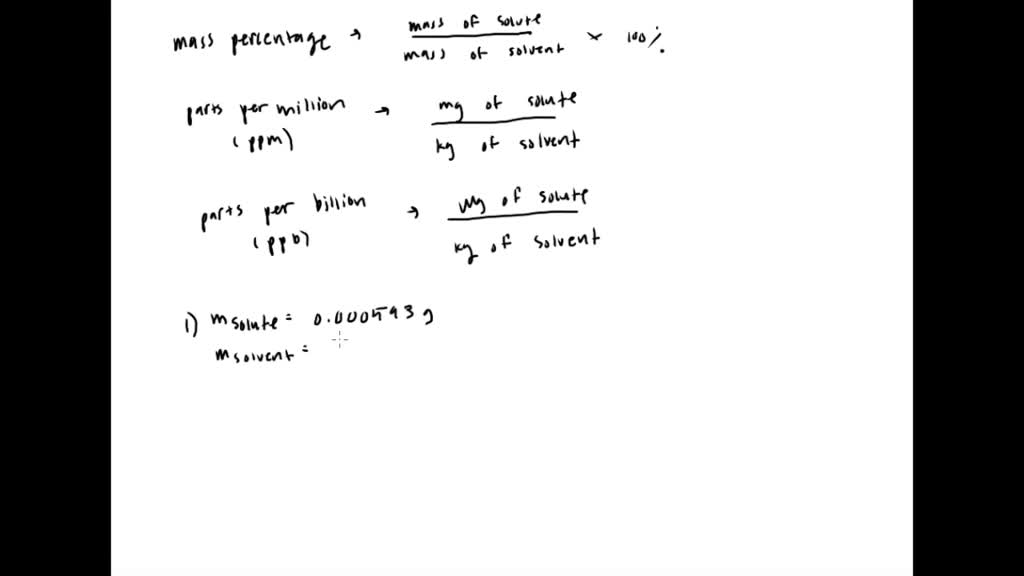 mass percentage → mass of solute / mass of solvent × 100%
parts per million → mg of solute / kg of solvent
(ppm)
parts per billion → μg of solute / kg of solvent
(ppb)
1) m solute = 0.000593 g
m solvent =